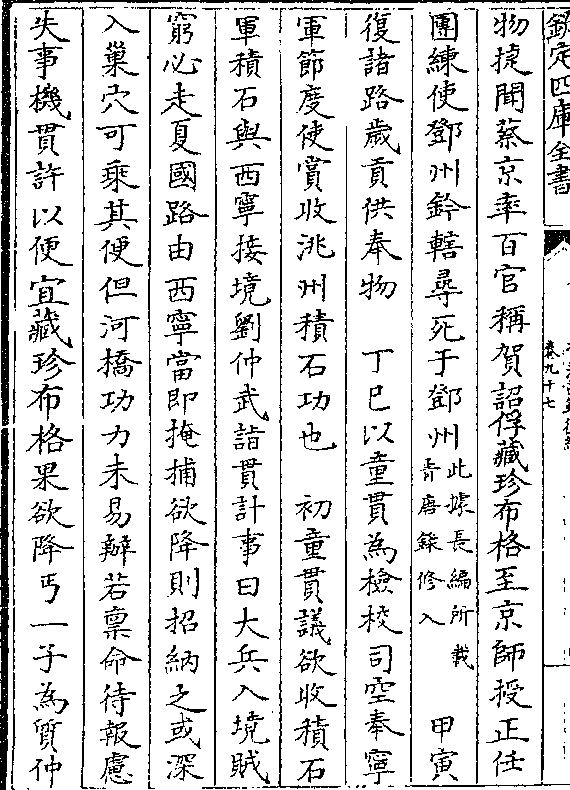 欽定四庫全書
卷九十七
物捷聞蔡京率百官稱賀詔俘藏珍布格至京師授正任
團練使鄧州鈐轄尋死于鄧州此據長編所載青唐錄修入　甲寅
復諸路歲貢供奉物　丁巳以童貫為檢校司空奉寧
軍節度使賞收洮州積石功也　初童貫議欲收積石
軍積石與西寧接境劉仲武詣貫計事曰大兵入境賊
窮必走夏國路由西寧當即掩捕欲降則招納之或深
入巢穴可乘其便但河橋功力未易辦若稟命待報慮
失事機貫許以便宜藏珍布格果欲降丐一子為質仲